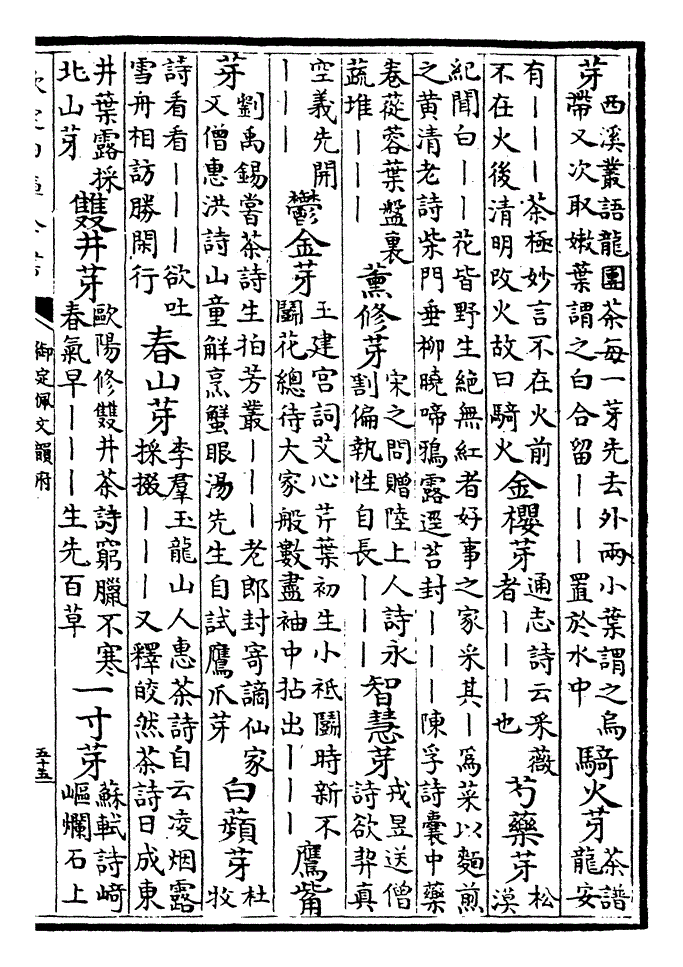 芽
西溪叢語龍團茶每一芽先去外兩小葉謂之烏
帶又次取嫩葉謂之白合留｜｜｜置於水中
騎火芽
茶譜
龍安
有｜｜｜茶極妙言不在火前
不在火後清明改火故曰騎火
金櫻芽
通志詩云采薇
者｜｜｜也
芍藥芽
松
漠
紀聞白｜｜花皆野生絶無紅者好事之家采其｜爲菜以麵煎
之黄清老詩柴門垂柳曉啼鴉露逕苔封｜｜｜陳孚詩囊中藥
卷蓯蓉葉盤裏
蔬堆｜｜｜
薰修芽
宋之問贈陸上人詩永
割偏執性自長｜｜｜
智慧芽
戎昱送僧
詩欲契真
空義先開
｜｜｜
鬱金芽
王建宮詞艾心芹葉初生小祗鬭時新不
鬭花總待大家般數盡袖中拈出｜｜｜
鷹觜
芽
劉禹錫嘗茶詩生拍芳叢｜｜｜老郎封寄謫仙家
又僧惠洪詩山童解烹蟹眼湯先生自試鷹爪芽
白蘋芽
杜
牧
詩看看｜｜｜欲吐
雪舟相訪勝閑行
春山芽
李羣玉龍山人惠茶詩自云凌烟露
採掇｜｜｜又釋皎然茶詩日成東
井葉露採
北山芽
雙井芽
歐陽修雙井茶詩窮臘不寒
春氣早｜｜｜生先百草
一寸芽
蘇軾詩崎
嶇爛石上
御定佩文韻府
五十五